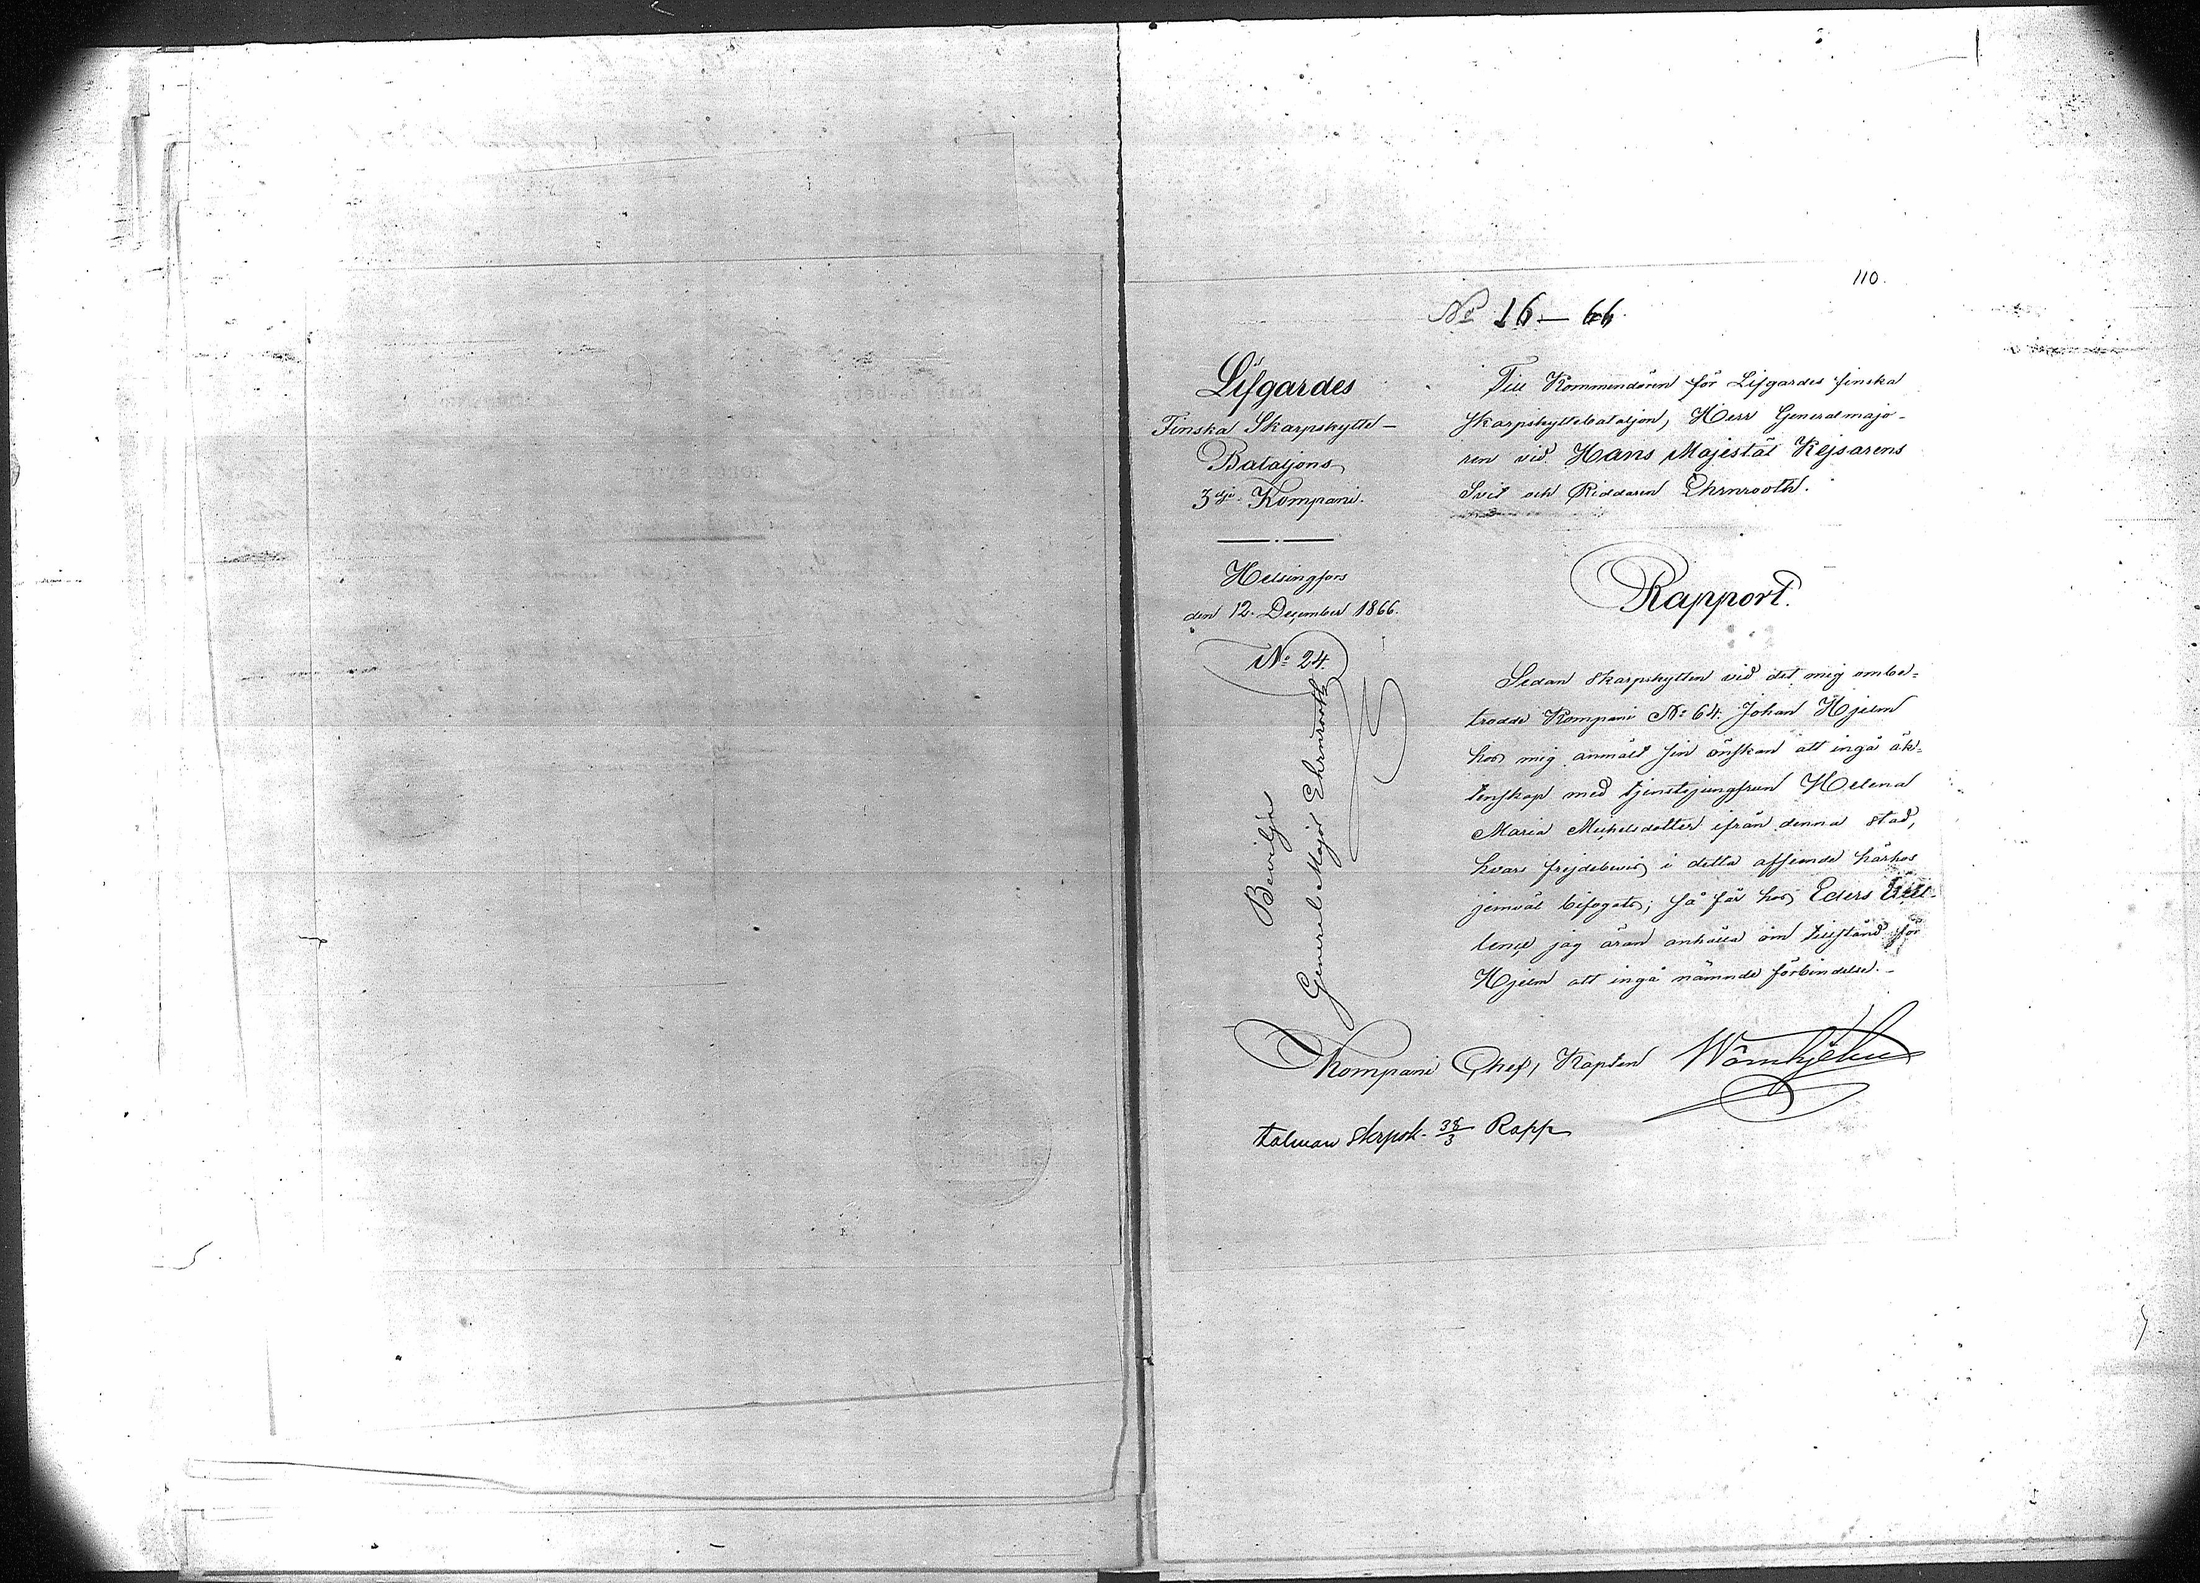 110.
No 16–66
Lifgardes
Finska Skarpskytte-
Bataljons
3dje Kompani.
Helsingfors
den 12. December 1866.
No 24.
Till Kommendören för Lifgardes finska
Skarpskyttebataljon, Herr Generalmajo-
ren vid Hans Majestät Kejsarens
Svit och Riddaren Ehrnrooth.
Rapport.
Sedan skarpskytten vid det mig ombe-
trodde Kompani No 64. Johan Hjelm
hos mig anmält sin önskan att ingå äk-
tenskap med tjenstejungfrun Helena
Maria Michelsdotter ifrån denna stad,
hvars frejdebevis i detta afseende härhos
jemväl bifogats; så får hos Eders Excel-
lence jag äran anhålla om tillstånd för
Hjelm att ingå nämnde förbindelse.
Beviljas
General Major Ehrnrooth
Kompani Chef, Kapten
Skrpsk. 38/3 Rapp